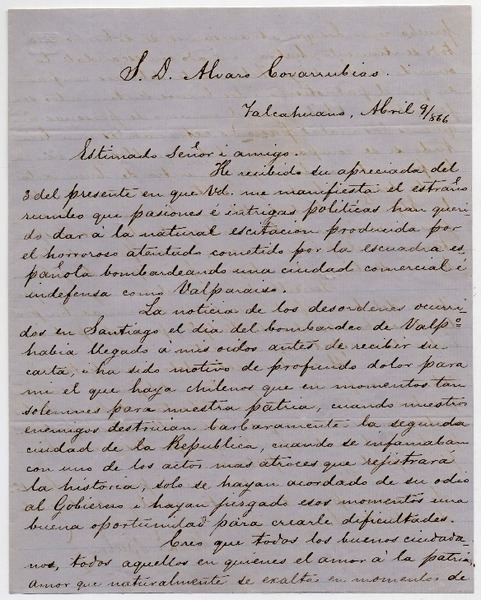 S. D. Alvaro Covarrubias.
Talcahuano, Abril 9/866
Estimado Señor i amigo.
He recibido su apreciada del
3 del presente en que Vd. me manifiesta el estraño
rumbo que pasiones é intrigas políticas han queri
do dar á la natural escitacion producida por
el horroroso atentado cometido por la escuadra es
pañola bombardeando una ciudad comercial é
indefensa como Valparaiso.
La noticia de los desordenes ocurri
dos en Santiago el dia del bombardeo de Valpº
habia llegado á mis oidos antes de recibir su
carta, i ha sido motivo de profundo dolor para
mi el que haya chilenos que en momentos tan
solemnes para nuestra pátria, cuando nuestros
enemigos destruian barbaramente la segunda
ciudad de la Republica, cuando se infamaban
con uno de los actos mas atroces que rejistrará
la historia, solo se hayan acordado de su odio
al Gobierno i hayan jusgado esos momentos una
buena oportunidad para crearle dificultades.
Creo que todos los buenos ciudada
nos, todos aquellos en quienes el amor á la patria,
amor que naturalmente se exalta en momentos de